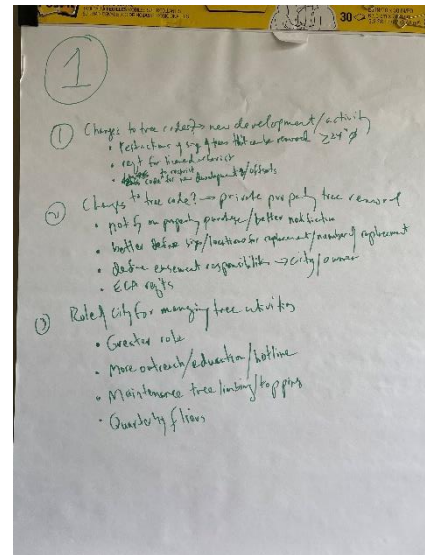 30
1
① Changes to tree codes? → new development/activity
• restrictions of sig trees that can be removed ≥24" ϕ
• reqt for licensed arborist
• to restrict code for new developments
② Changes to tree code? → private property tree removal
• notify on property purchase/better notification
• better define sign/locations for replacement/number of replacement
• define easement responsibilities → city/owner
• ECA reqts
③ Role of City for managing tree activities
• Greater role
• More outreach/education/hotline
• Maintenance tree limbing/topping
• Quarterly fliers